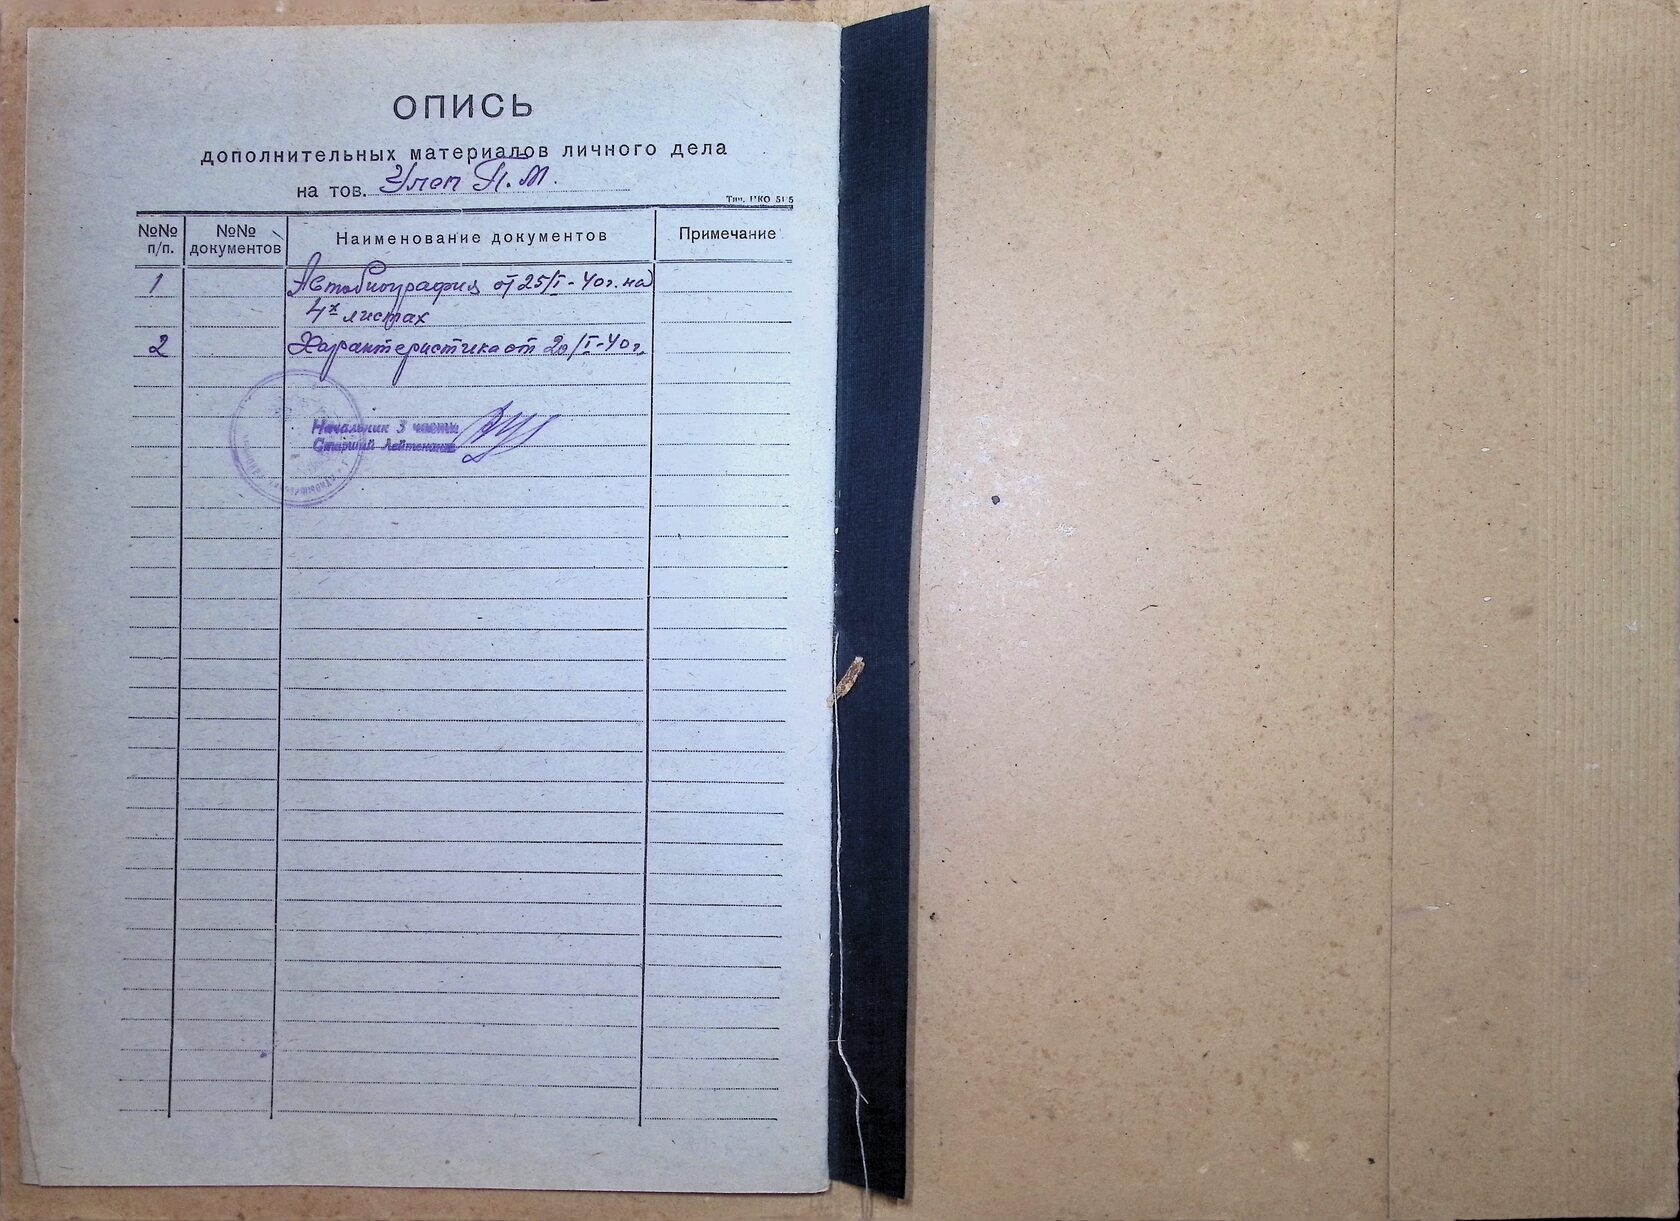 ОПИСЬ
дополнительных материалов личного дела
на тов. Улеп П. М.
Тип. НКО 515
№№ п/п. №№ документов Наименование документов Примечание
1 Автобиография от 25/I-40г. на
4х листах
2 Характеристика от 20/I-40г.
Начальник 3 части
Старший Лейтенант